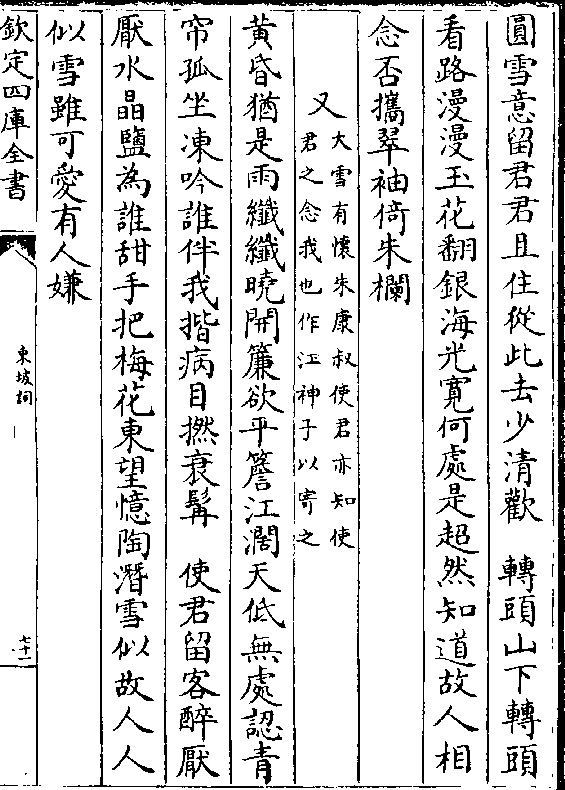 圓雪意留君君且住從此去少清歡　轉頭山下轉頭
看路漫漫玉花翻銀海光寛何處是超然知道故人相
念否攜翠袖倚朱欄
又大雪有懷朱康叔使君亦知使
君之念我也作江神子以寄之
黄昏猶是雨纖纖曉開簾欲平簷江濶天低無處認青
帘孤坐凍吟誰伴我揩病目撚衰髯　使君留客醉厭
厭水晶鹽為誰甜手把梅花東望憶陶潛雪似故人人
似雪雖可愛有人嫌
欽定四庫全書
東坡詞
七十一